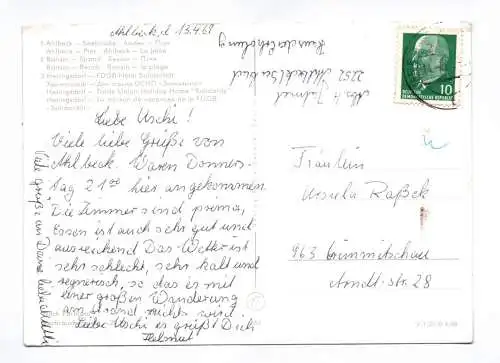 Ahlbeck, d. 13.4.69
1 Ahlbeck — Seebrücke
Ahlbeck — Pier Ahlbeck — La jetée
2 Bansin — Strand
Bansin — Beach Bansin — la plage
3 Heringsdorf — FDGB-Heim "Solidarität"
Heringsdorf — Trade Union Holiday Home "Solidarity"
Heringsdorf — La maison de vacances de la FDGB
„Solidarité"
Liebe Uschi!
Viele liebe Grüße von
Ahlbeck. Waren Donners-
tag 21⁰⁰ hier angekommen
Die Zimmer sind prima,
Essen ist auch sehr gut und
ausreichend Das Wetter ist
sehr schlecht, sehr kalt und
regnerisch, so das es mit
einer großen Wanderung
am Strand nichts wird
Liebe Uschi es grüßt Dich
Helmut
Viele Grüße an Deine
2252 Ahlbeck/Seebad
10
DEUTSCHE
DEMOKRATISCHE REPUBLIK
Fräulein
Ursula Raßek
963 Crimmitschau
Arndt-str. 28